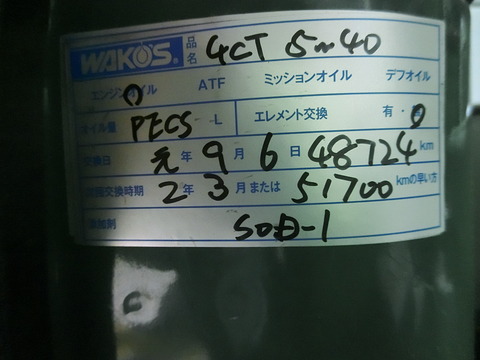 WAKO'S 品名 4CT 5~40
エンジンオイル ATF ミッションオイル デフオイル
オイル量 PECS -L エレメント交換 有・
交換日 元年 9月 6日 48724 km
次回交換時期 2年 3月または 51700 kmの早い方
添加剤 SOD-1